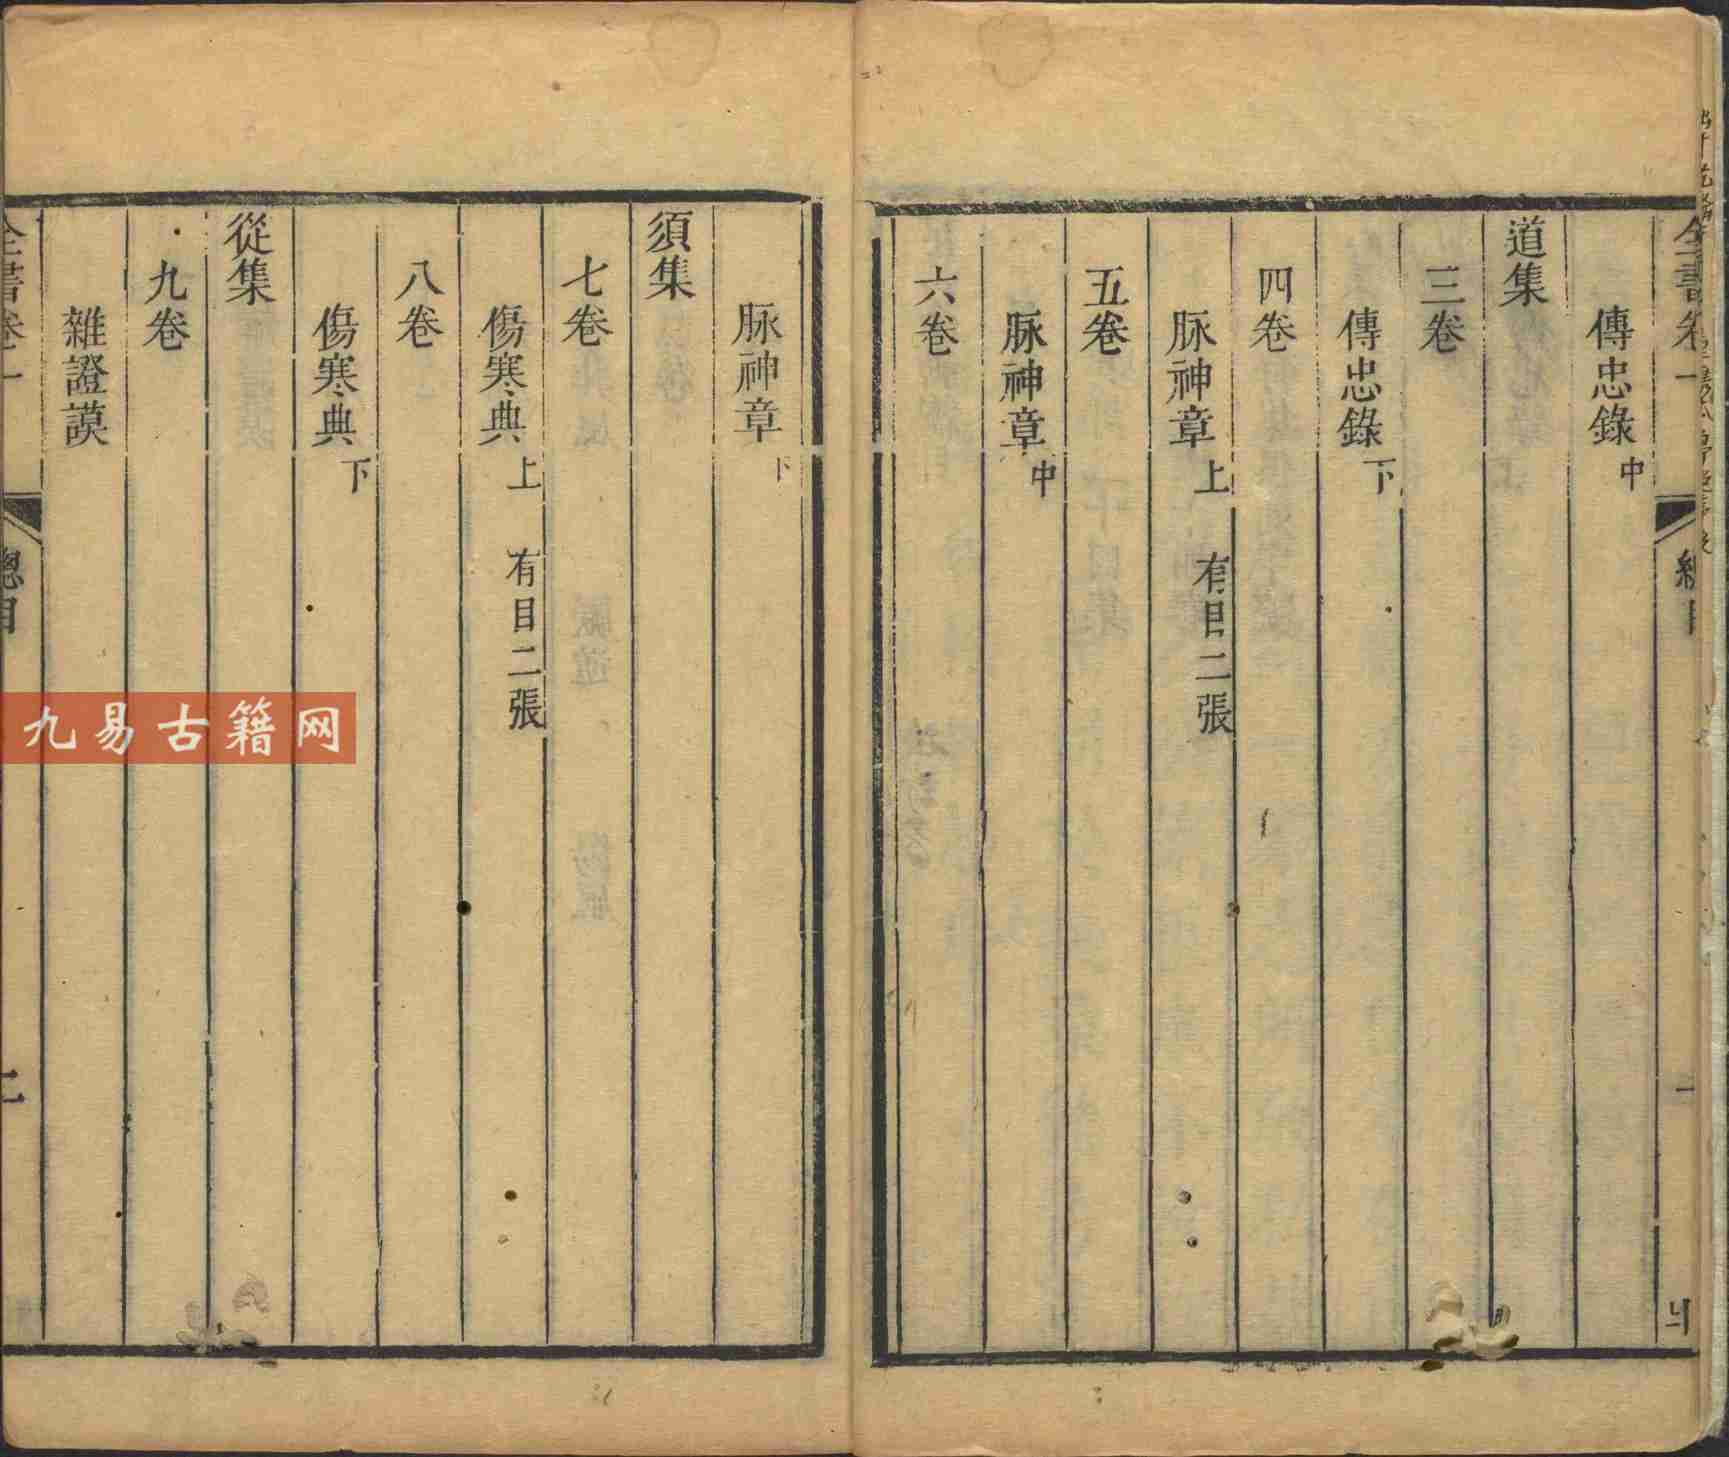 傳忠錄 中
道集
三卷
傳忠錄 下
四卷
脉神章 上 有目二張
五卷
脉神章 中
六卷
脉神章 下
須集
七卷
傷寒典 上 有目二張
八卷
傷寒典 下
從集
九卷
雜證謨
全書卷一 總目 二
九易古籍网